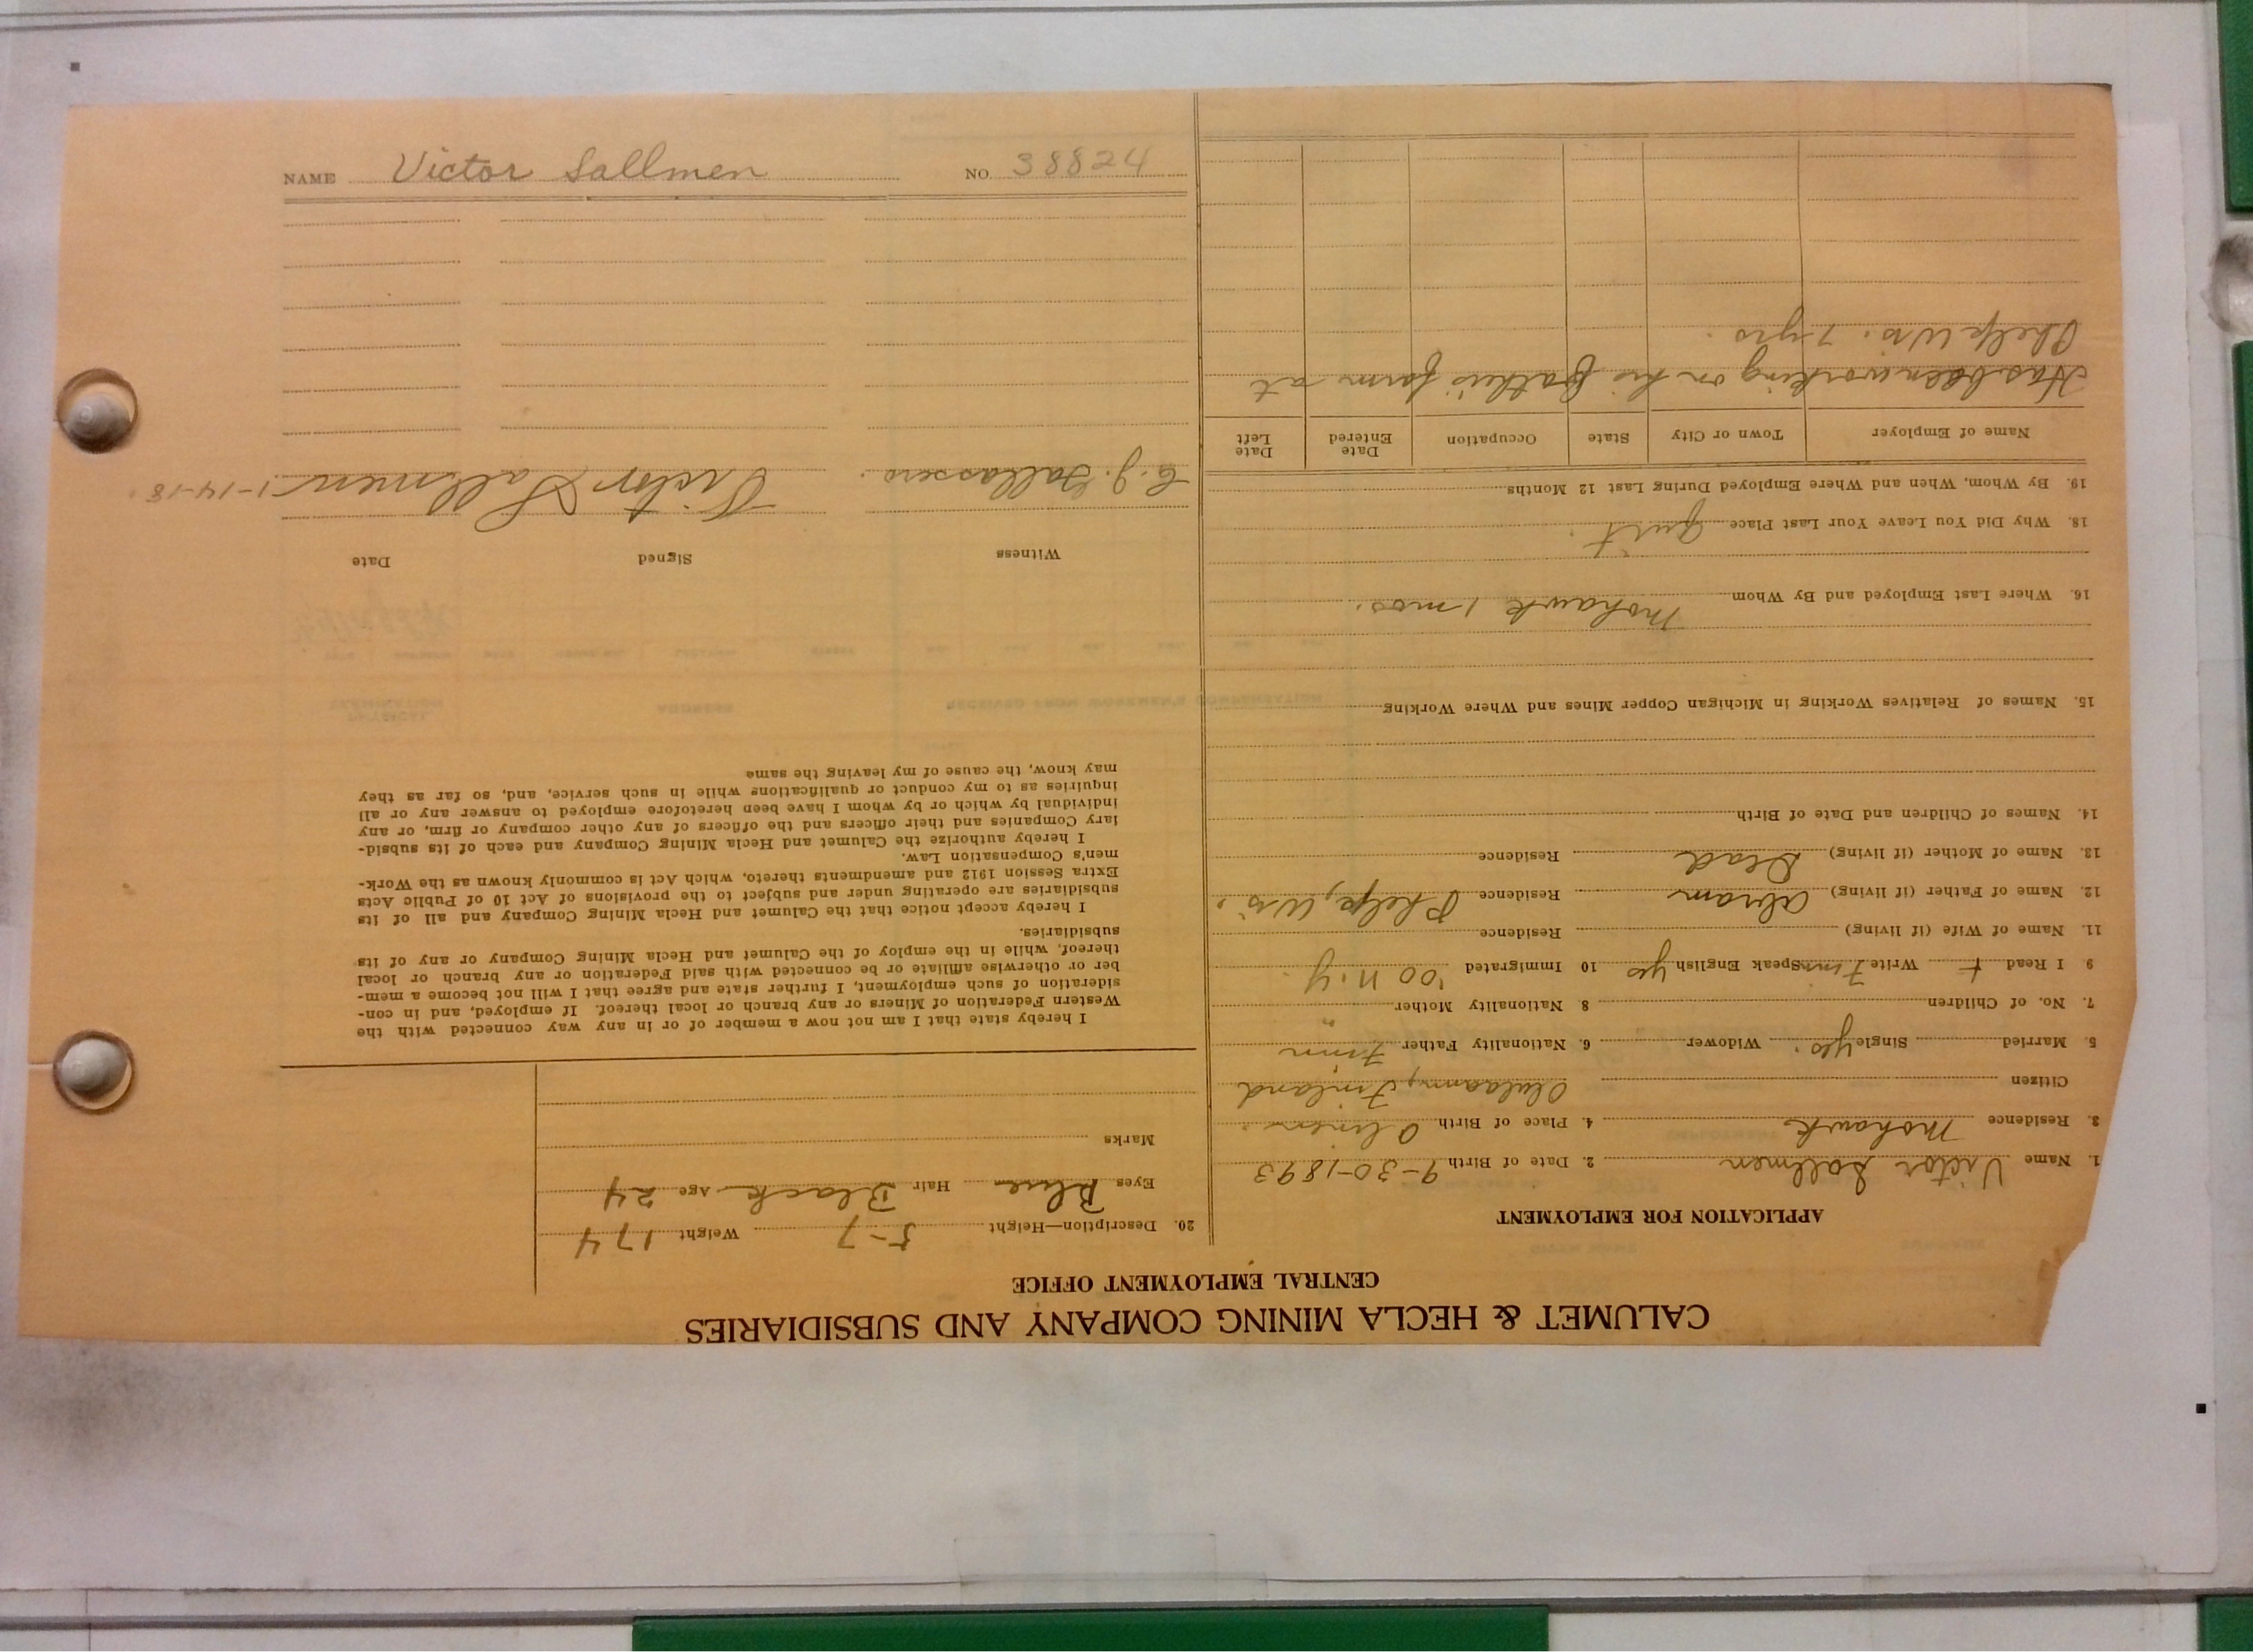 NAME Victor Sallmen NO. 38824
CALUMET & HECLA MINING COMPANY AND SUBSIDIARIES
CENTRAL EMPLOYMENT OFFICE
APPLICATION FOR EMPLOYMENT
1. Name Victor Sallmen 2. Date of Birth 9-30-1893
3. Residence Mohawk 4. Place of Birth
Citizen Finland
5. Married Single yes. Widower 6. Nationality Father Finn
7. No. of Children 8 Nationality Mother "
9 I Read F Write Finn Speak English yes 10 Immigrated '00 N.Y.
11. Name of Wife (if living) Residence
12. Name of Father (if living) Abram Residence Phelps, Wis.
13. Name of Mother (if living) Dead Residence
14. Names of Children and Date of Birth
15. Names of Relatives Working in Michigan Copper Mines and Where Working
16. Where Last Employed and By Whom Mohawk 1 mos.
18. Why Did You Leave Your Last Place quit.
19. By Whom, When and Where Employed During Last 12 Months
Name of Employer Town or City State Occupation Date Entered Date Left
Has been working on his father's farm at
Phelps Wis. 7 yrs.
20. Description—Height 5-7 Weight 174
Eyes Blue Hair Black Age 24
Marks
I hereby state that I am not now a member of or in any way connected with the
Western Federation of Miners or any branch or local thereof. If employed, and in con-
sideration of such employment, I further state and agree that I will not become a mem-
ber or otherwise affiliate or be connected with said Federation or any branch or local
thereof, while in the employ of the Calumet and Hecla Mining Company or any of its
subsidiaries.
I hereby accept notice that the Calumet and Hecla Mining Company and all of its
subsidiaries are operating under and subject to the provisions of Act 10 of Public Acts
Extra Session 1912 and amendments thereto, which Act is commonly known as the Work-
men's Compensation Law.
I hereby authorize the Calumet and Hecla Mining Company and each of its subsid-
iary Companies and their officers and the officers of any other company or firm, or any
individual by which or by whom I have been heretofore employed to answer any or all
inquiries as to my conduct or qualifications while in such service, and, so far as they
may know, the cause of my leaving the same
Witness Signed Date
Victor Sallmen 1-14-18.